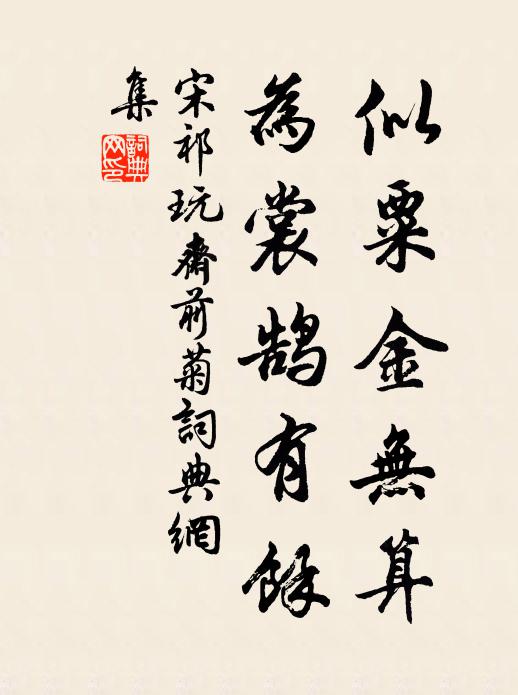 似粟金無算
為裳鹄有餘
宋祁玩齋前菊詞典網
集
詞典網印